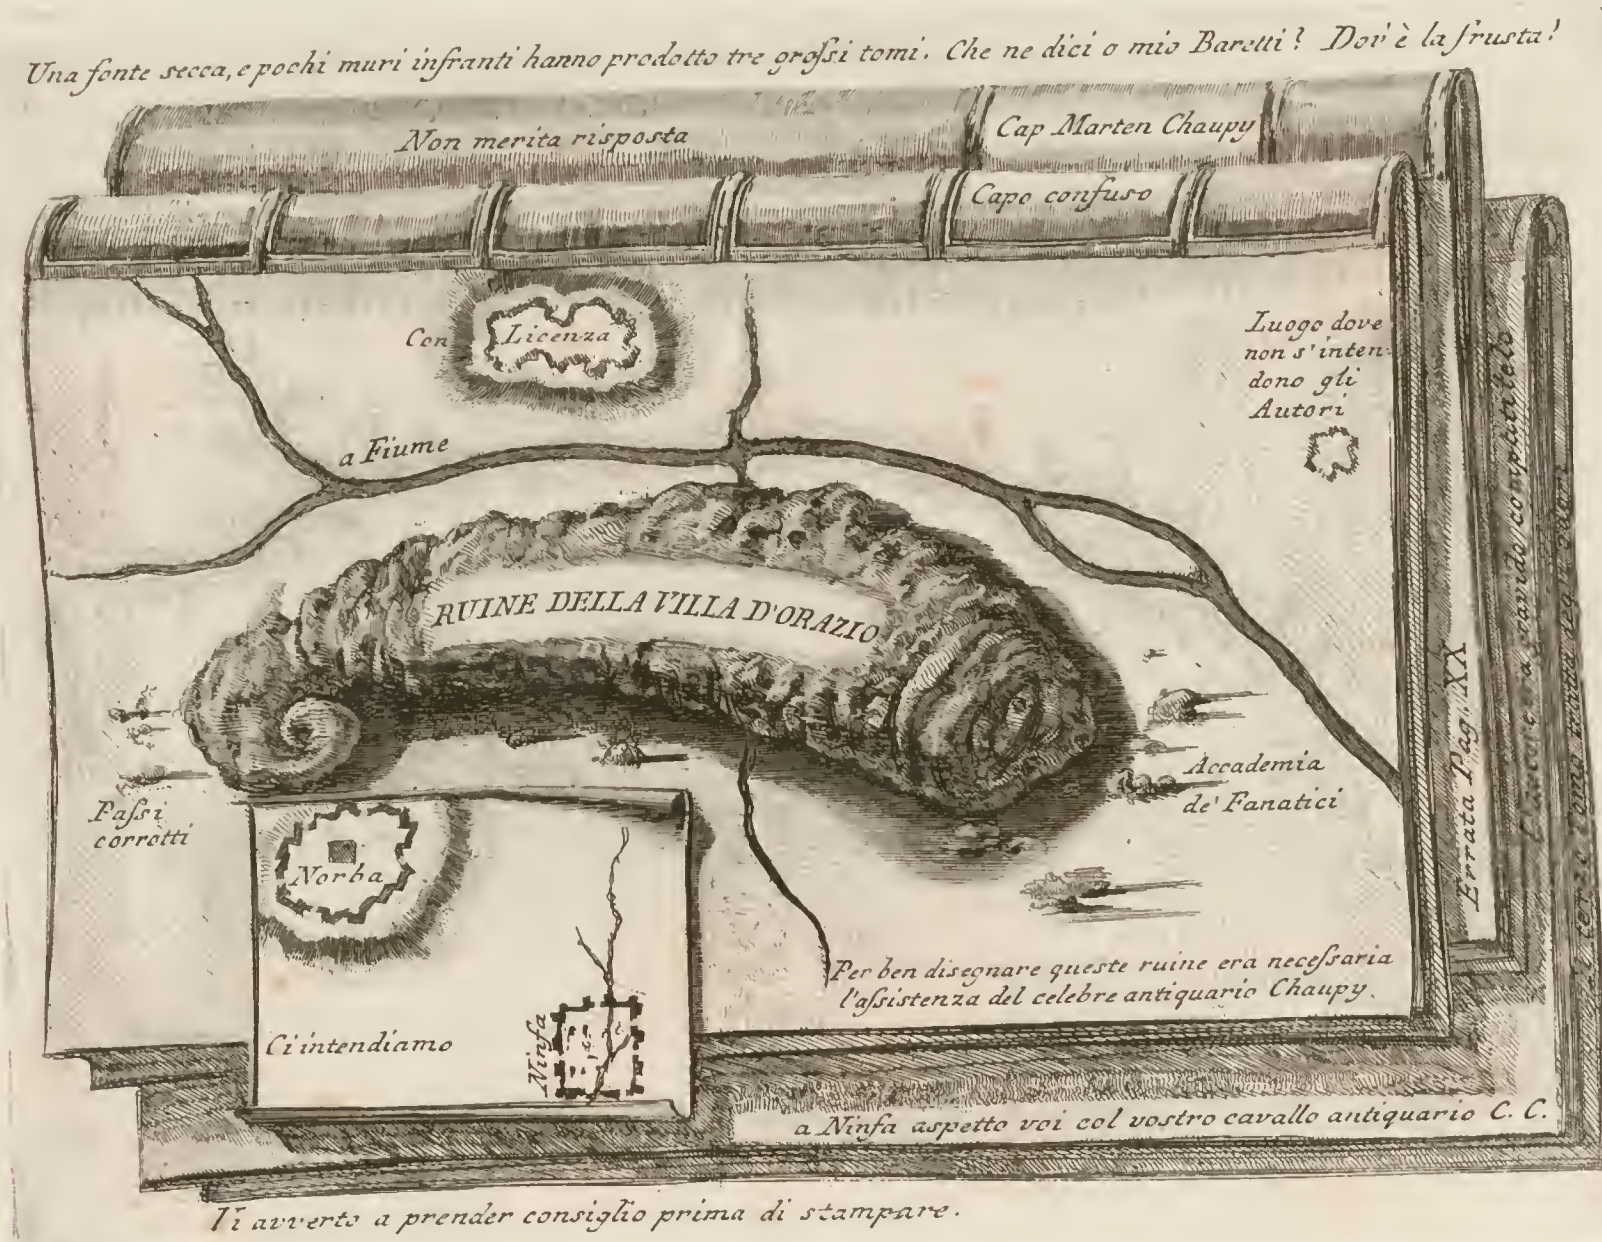 Una fonte secca, e pochi muri infranti hanno prodotto tre groſsi tomi. Che ne dici o mio Baretti? Dov'è la frusta!
Non merita risposta
Cap Marten Chaupy
Capo confuso
Con Licenza
Luogo dove
non s'inten-
dono gli
Autori
a Fiume
RUINE DELLA VILLA D'ORAZIO
Accademia
de' Fanatici
Paſsi
corrotti
Norba
Per ben disegnare queste ruine era neceſsaria
l'aſsistenza del celebre antiquario Chaupy.
Ci intendiamo
Ninfa
Errata Pag. XX
L'autore è a cavallo compatitelo
terzo tomo
a Ninfa aspetto voi col vostro cavallo antiquario C. C.
Vi avverto a prender consiglio prima di stampare.